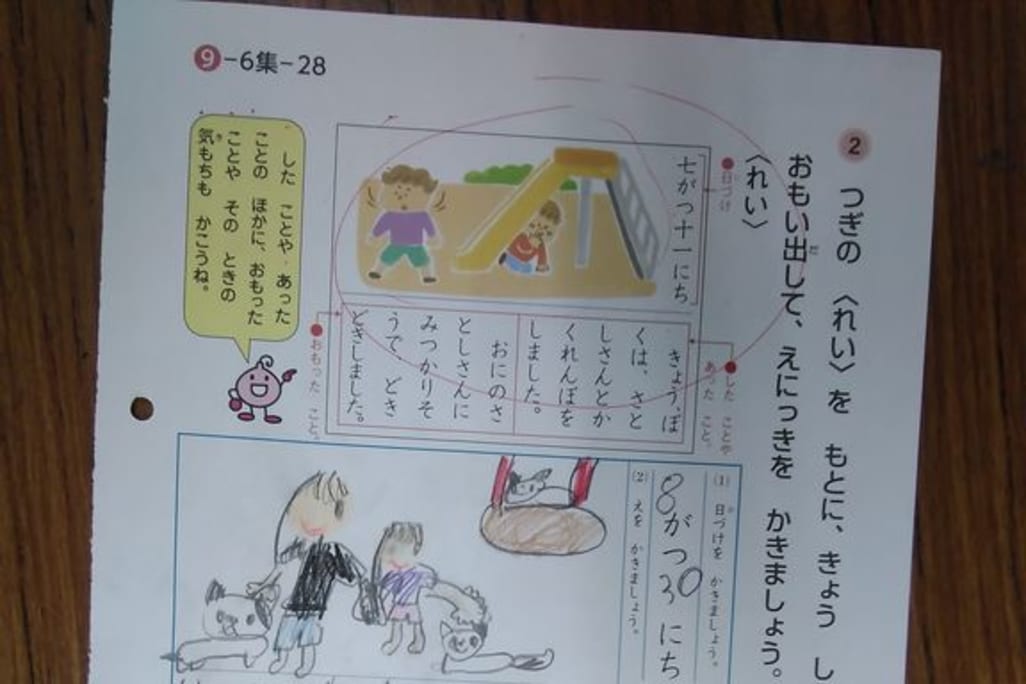 9-6集-28
2 つぎの 〈れい〉を もとに、きょう し
おもい出して、えにっきを かきましょう。
だ
〈れい〉
●日づけ
七がつ十一にち
●した ことや
あった こと。
きょう、ぼ
くは、さと
しさんとか
くれんぼを
しました。
おにのさ
としさんに
みつかりそ
うで、どき
どきしました。
●おもった こと。
した ことや あった
ことの ほかに、おもった
ことや その ときの
気もちも かこうね。
き
(1) 日づけを かきましょう。
8がつ30にち
(2) えを かきましょう。